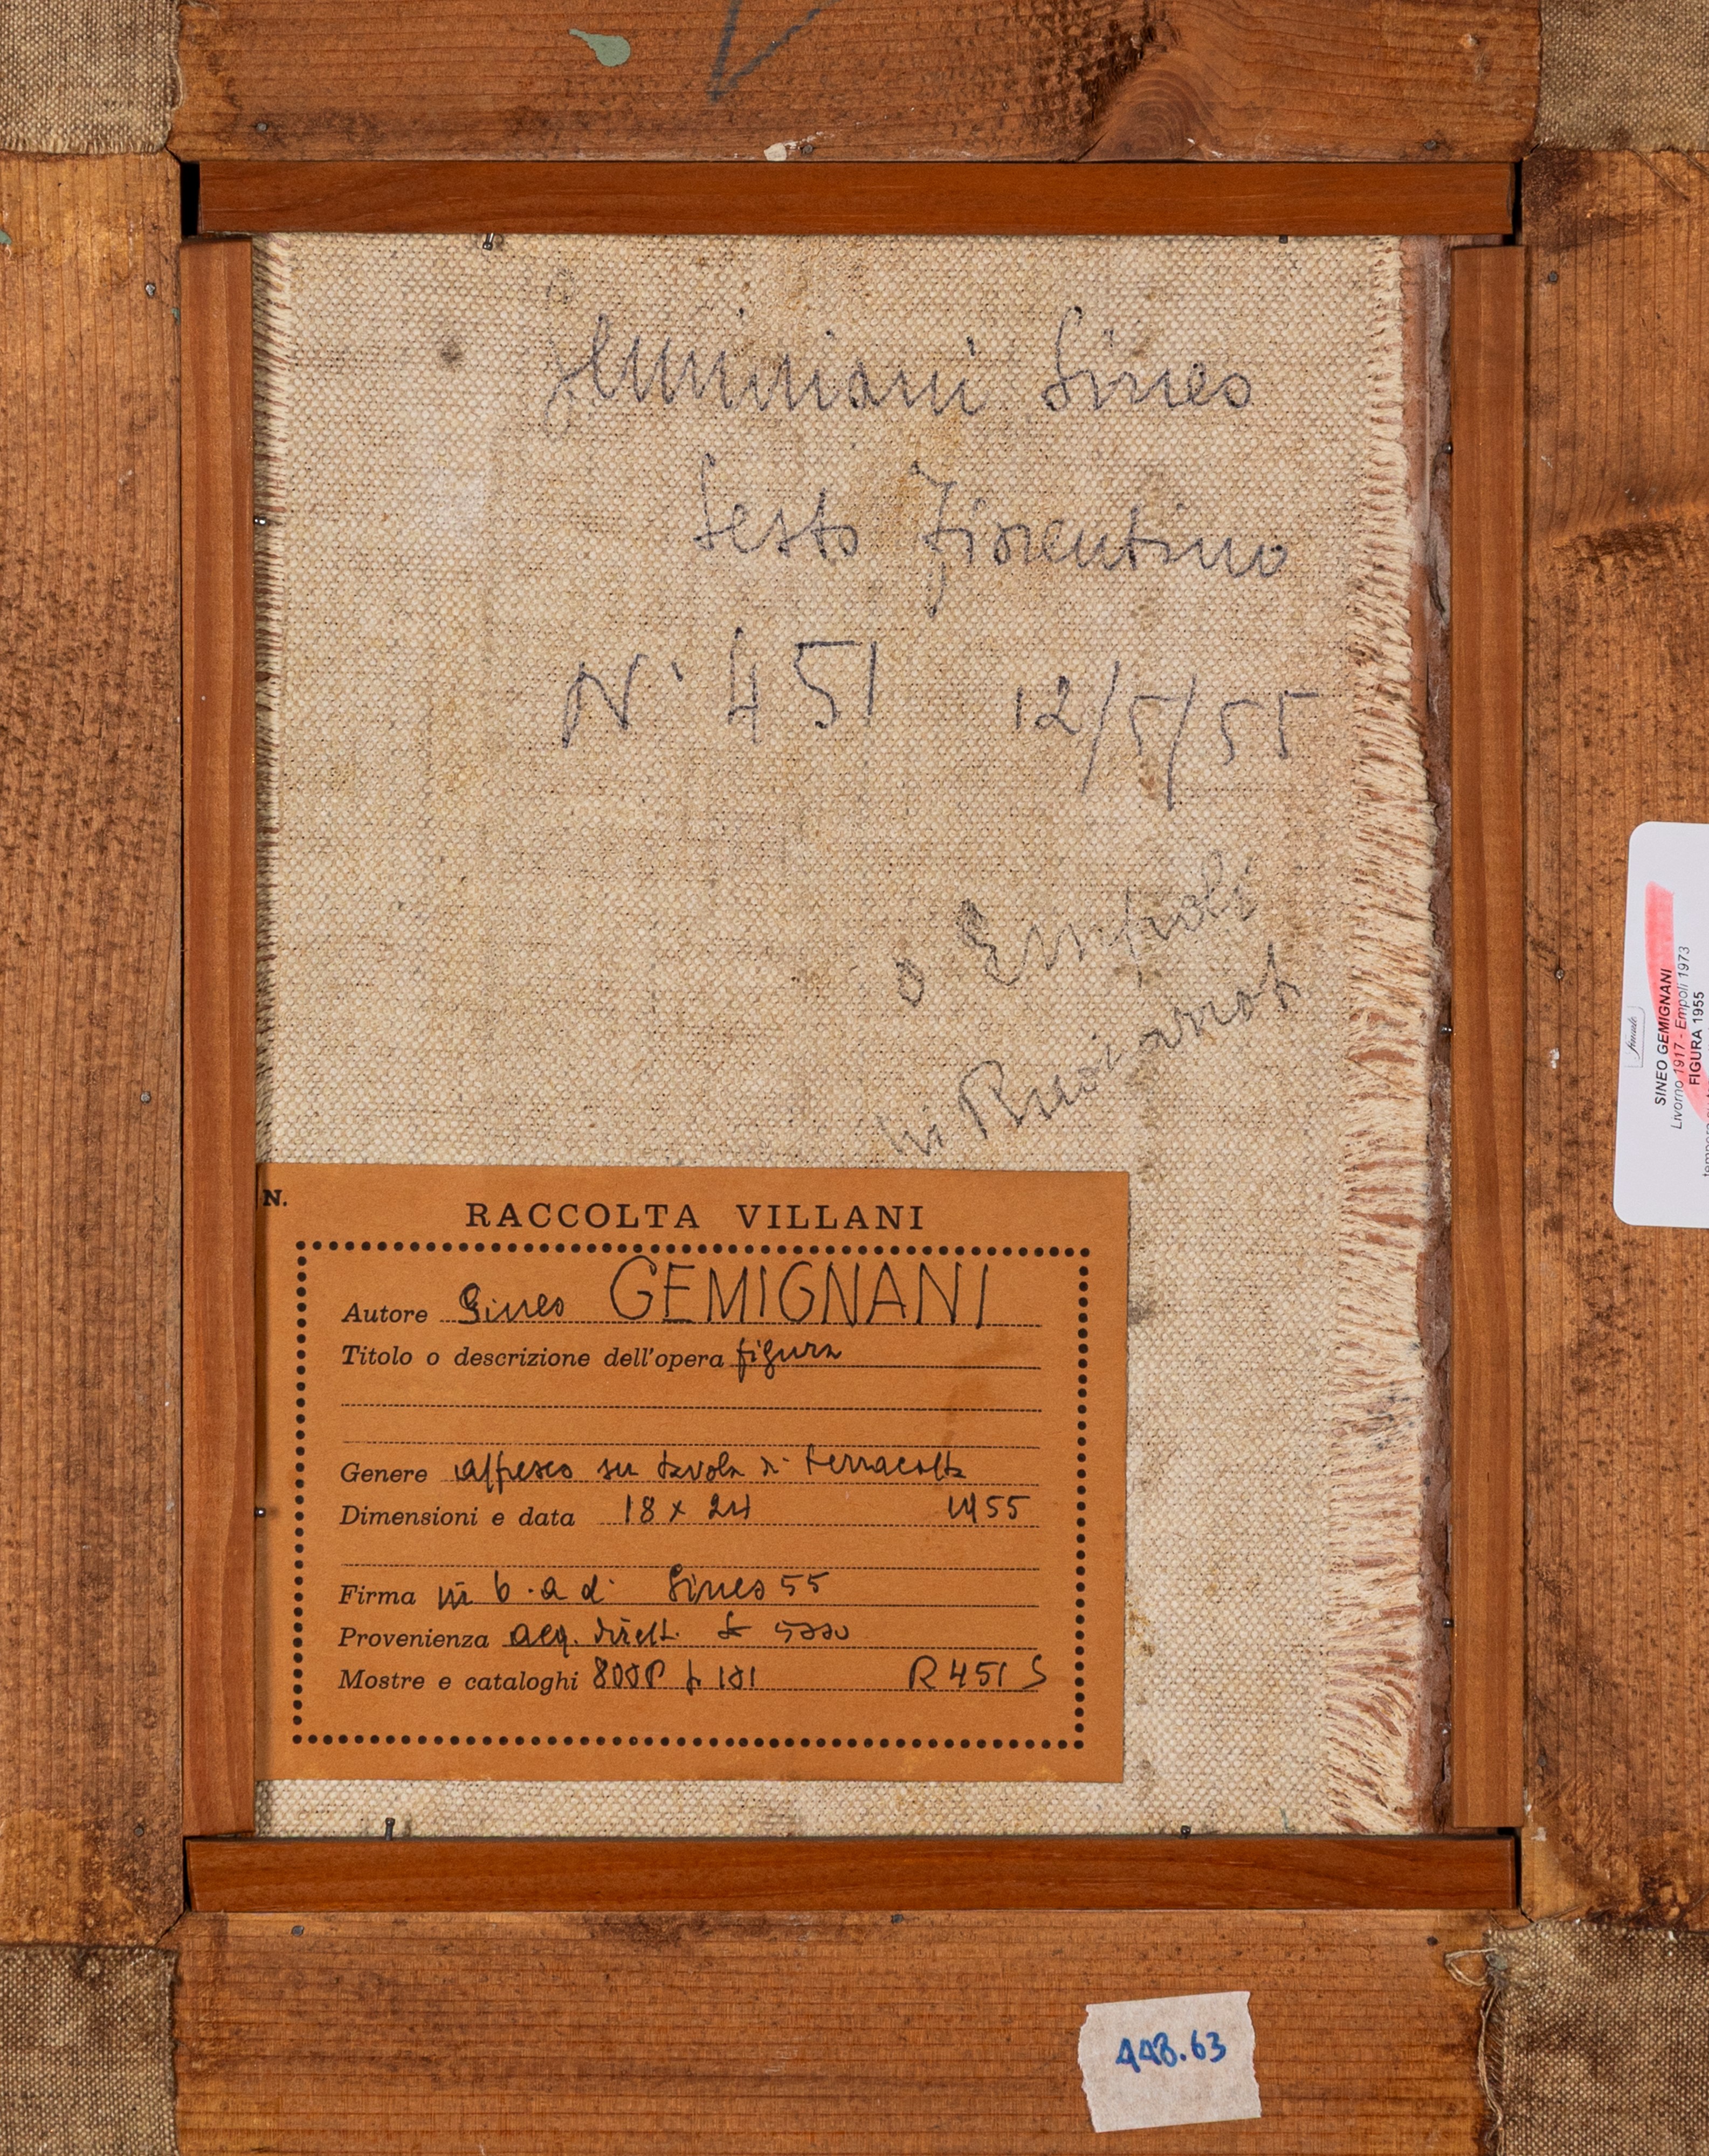 Sineo
Sesto Fiorentino
N° 451 12/5/55
o Empoli
N.
RACCOLTA VILLANI
Autore Sineo GEMIGNANI
Titolo o descrizione dell'opera figura
Genere affresco su tavola di terracotta
Dimensioni e data 18 x 24 1955
Firma in b. a d. Sineo 55
Provenienza acq. dirett.
Mostre e cataloghi R 451 S
448.63
SINEO GEMIGNANI
Livorno 1917 - Empoli 1973
FIGURA 1955